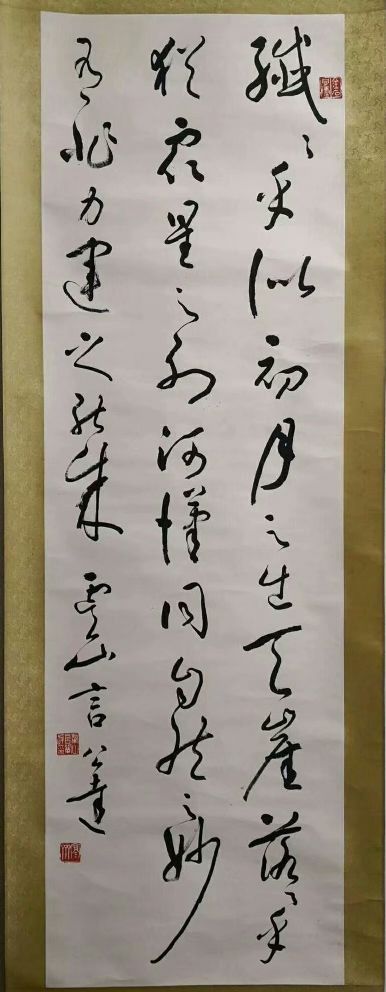 纖〻乎似初月之出天崖落〻乎
猶眾星之列河漢同自然之妙
有非力運之能成 虞山言公達